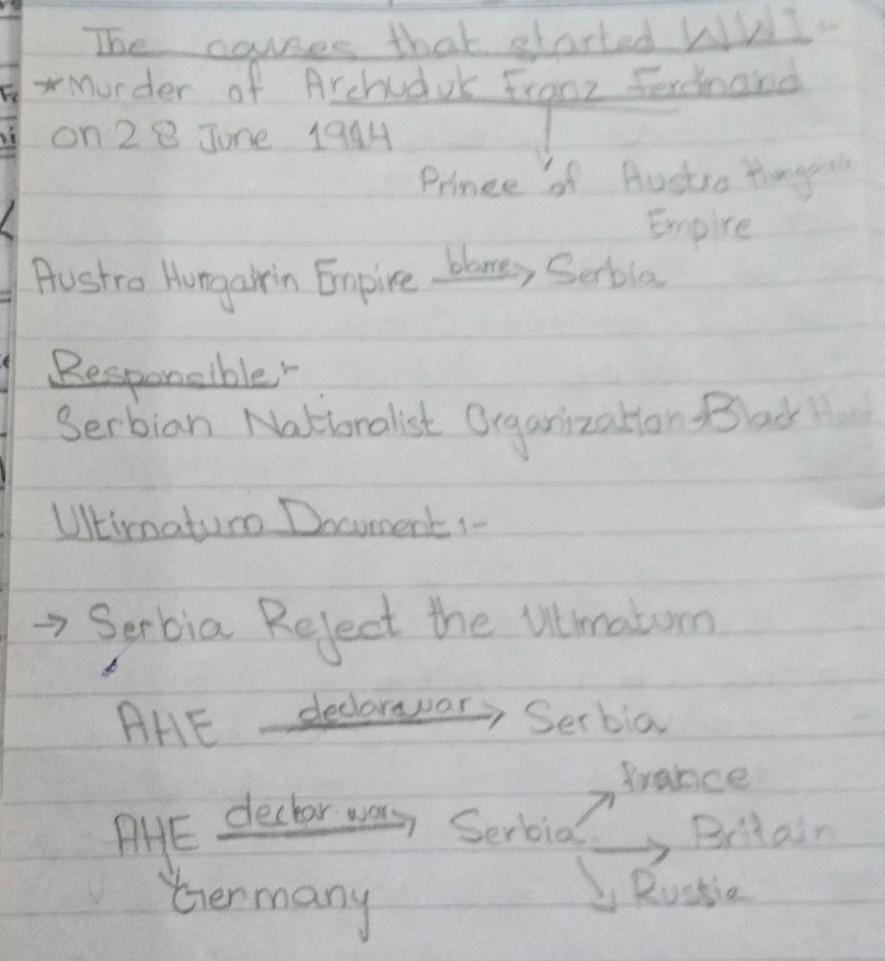 The causes that started WWI-
*Murder of Archuduk Franz Ferdinand
on 28 June 1914
Prince of Austro Hungarian
Empire
Austro Hungarin Empire blame→ Serbia
Responsible:-
Serbian Nationalist Organization→Black Hand
Ultimatum Document:-
→ Serbia Reject the Ultimatum
AHE declara war→ Serbia
france
AHE declar war→ Serbia → Britain
Germany Russia